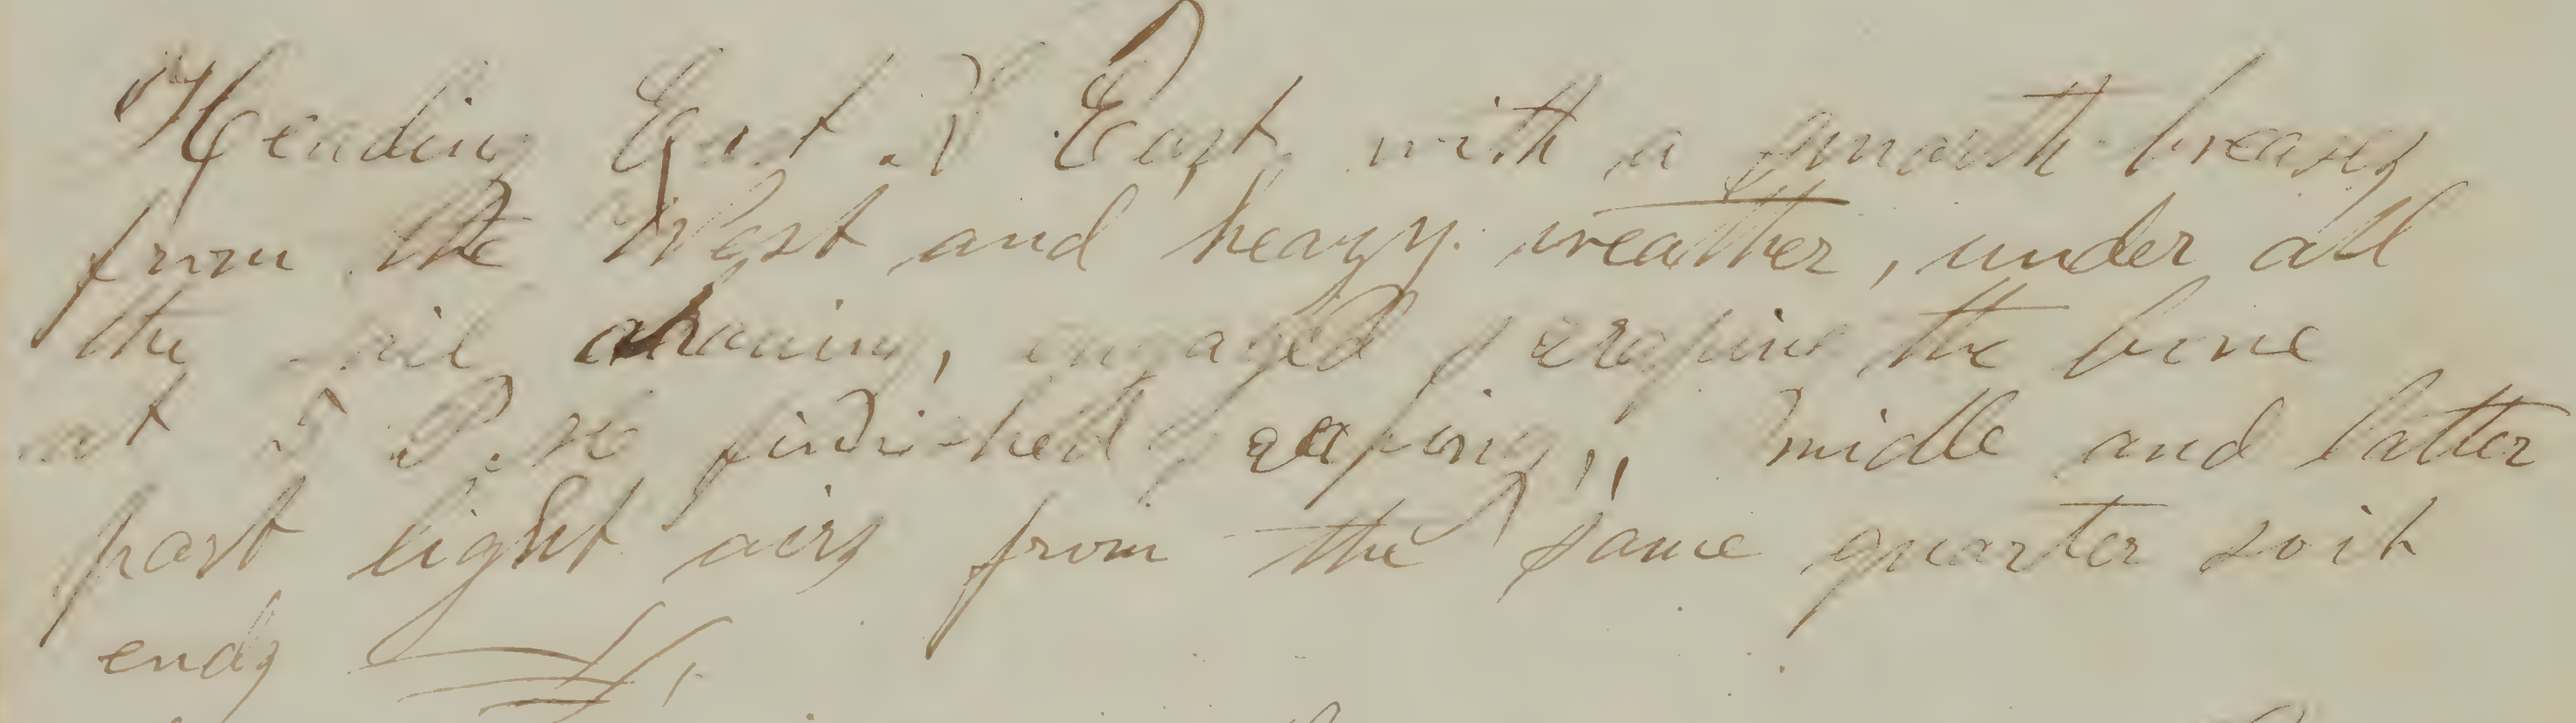 Heading East & East, with a smarth breasy
from the West and heavy weather, under all
the sail drawing, engaged scraping the bone
at 5 P.M finished scraping,, Midle and latter
part light airs from the Same quarter so it
ends